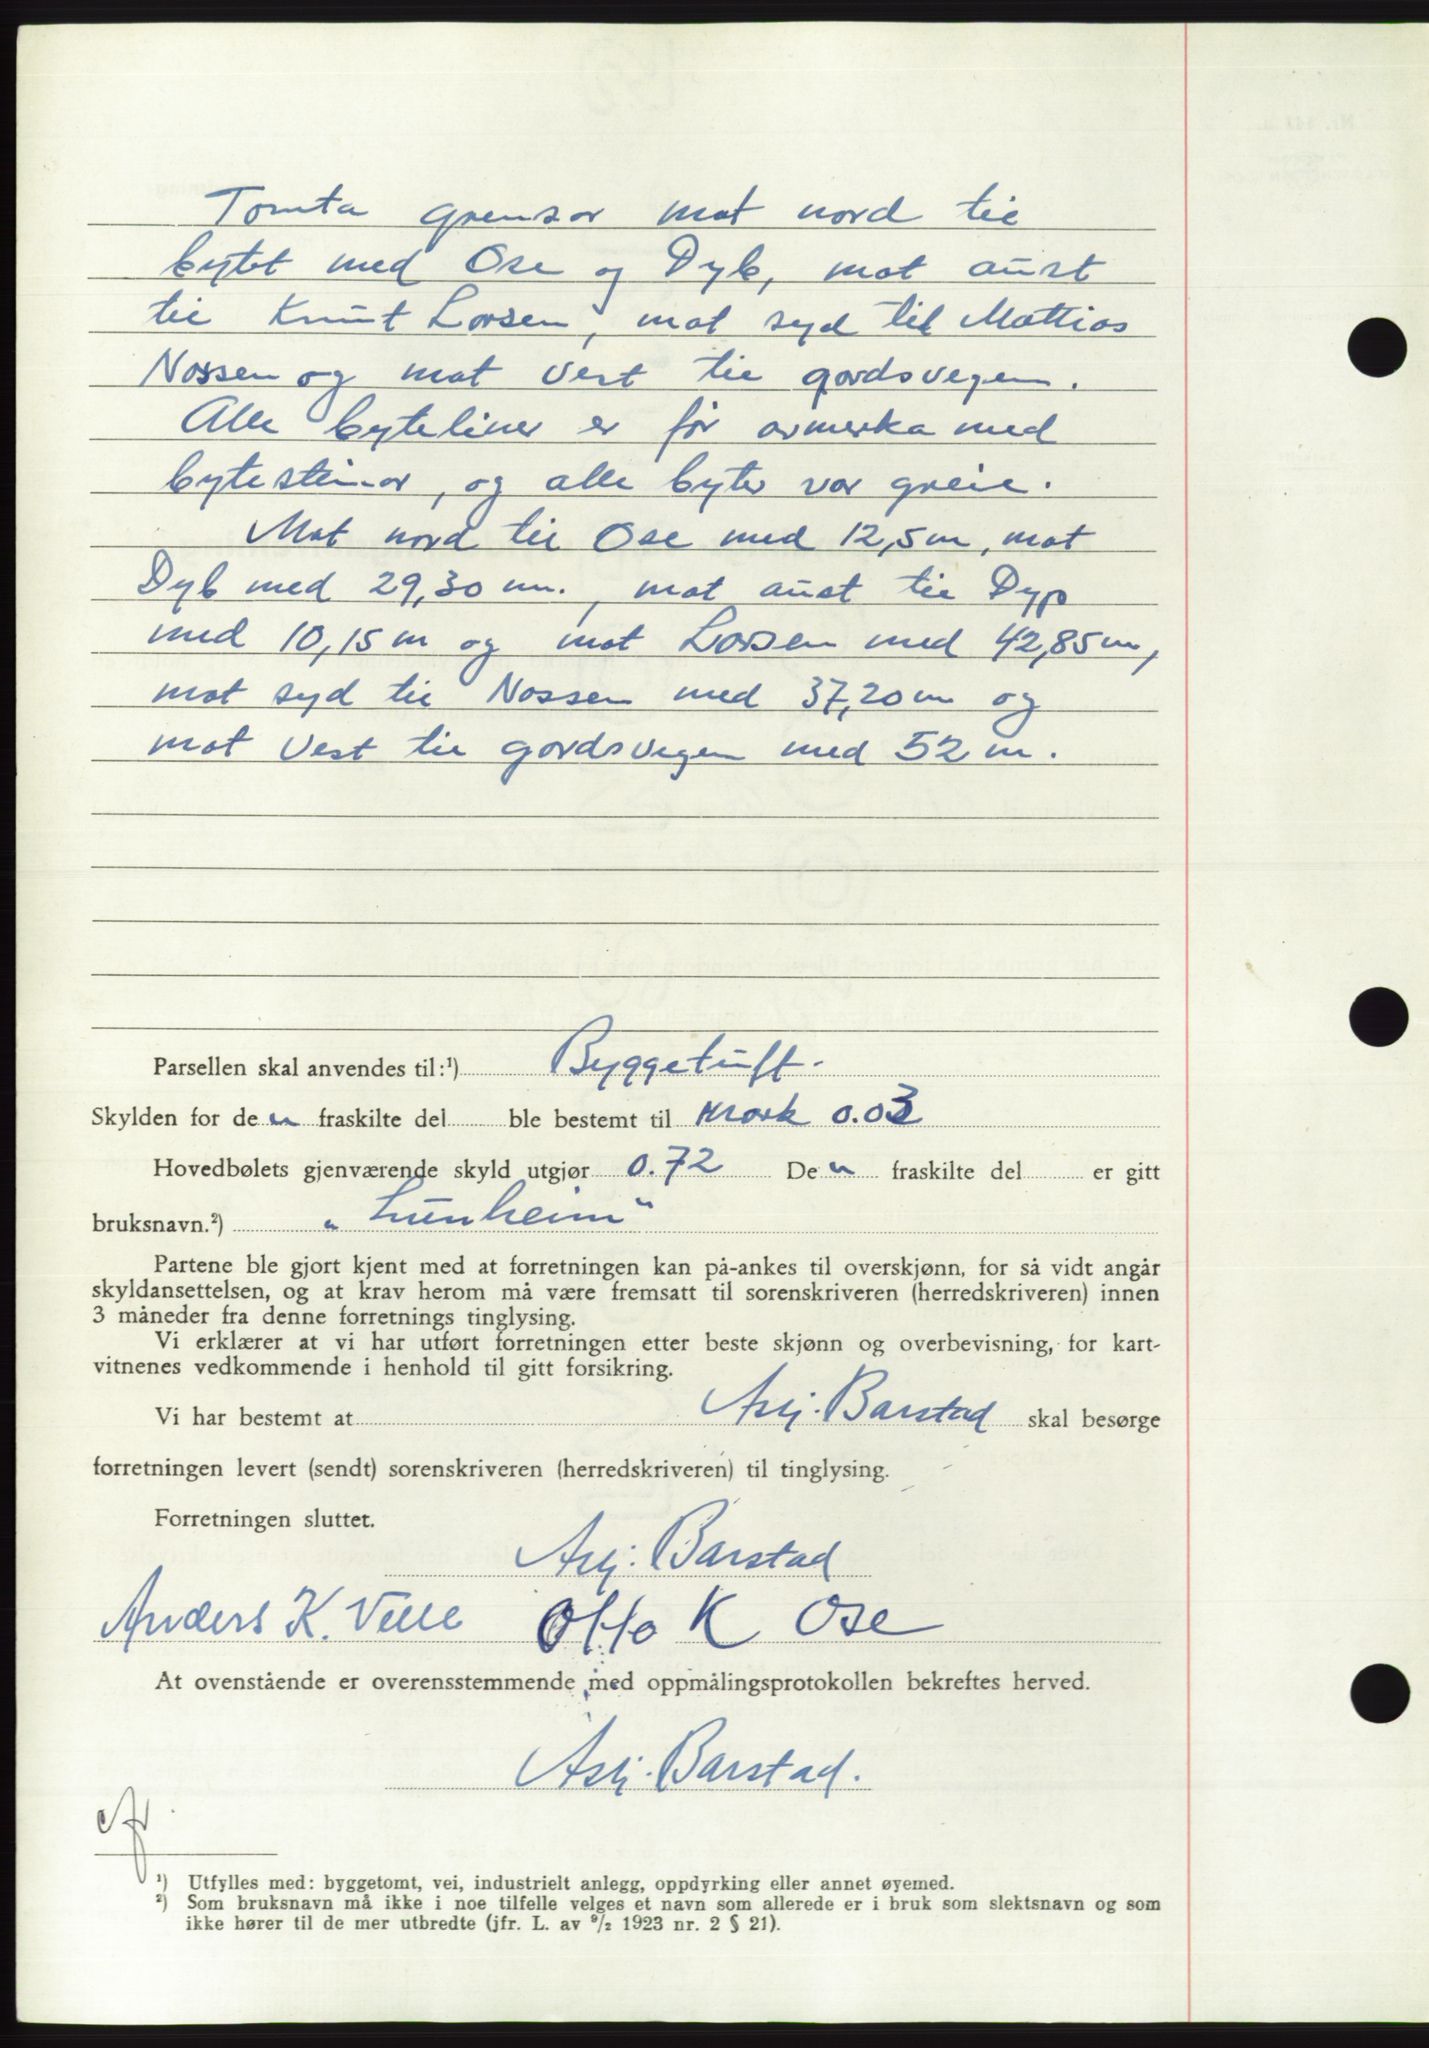 Tomta grensar mot nord til
bytet med Ose og Dyb, mot aust
til Knut Larsen, mot syd til Mattias
Nossen og mot vest til gardsvegen.
Alle byteliner er før avmerka med
bytesteinar, og alle byter var greie.
Mot nord til Ose med 12,5 m, mot
Dyb med 29,30 m., mot aust til Dyp
med 10,15 m og mot Larsen med 42,85 m,
mot syd til Nossen med 37,20 m og
mot vest til gardsvegen med 52 m.
Parsellen skal anvendes til:¹) Byggetuft.
Skylden for den fraskilte del ble bestemt til Mark 0.03
Hovedbølets gjenværende skyld utgjør 0.72 Den fraskilte del er gitt
bruksnavn.²) „Lunheim"
Partene ble gjort kjent med at forretningen kan på-ankes til overskjønn, for så vidt angår
skyldansettelsen, og at krav herom må være fremsatt til sorenskriveren (herredskriveren) innen
3 måneder fra denne forretnings tinglysing.
Vi erklærer at vi har utført forretningen etter beste skjønn og overbevisning, for kart-
vitnenes vedkommende i henhold til gitt forsikring.
Vi har bestemt at Asbj. Barstad skal besørge
forretningen levert (sendt) sorenskriveren (herredskriveren) til tinglysing.
Forretningen sluttet.
Asbj. Barstad
Anders K. Velle Otto K Ose
At ovenstående er overensstemmende med oppmålingsprotokollen bekreftes herved.
Asbj. Barstad.
¹) Utfylles med: byggetomt, vei, industrielt anlegg, oppdyrking eller annet øyemed.
²) Som bruksnavn må ikke i noe tilfelle velges et navn som allerede er i bruk som slektsnavn og som
ikke hører til de mer utbredte (jfr. L. av ⁹/₂ 1923 nr. 2 § 21).